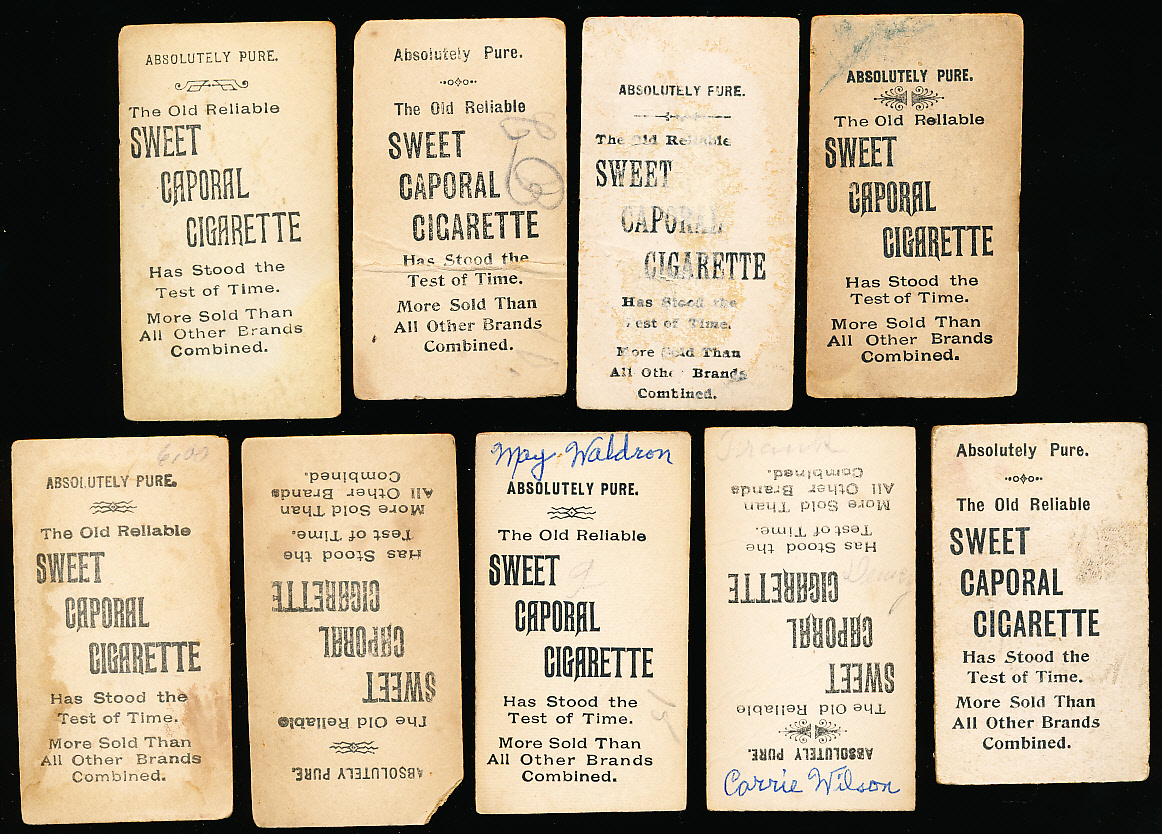 ABSOLUTELY PURE.
The Old Reliable
SWEET
CAPORAL
CIGARETTE
Has Stood the
Test of Time.
More Sold Than
All Other Brands
Combined.
Absolutely Pure.
The Old Reliable
SWEET
CAPORAL
CIGARETTE
Has Stood the
Test of Time.
More Sold Than
All Other Brands
Combined.
ABSOLUTELY PURE.
The Old Reliable
SWEET
CAPORAL
CIGARETTE
Has Stood the
Test of Time.
More Sold Than
All Other Brands
Combined.
ABSOLUTELY PURE.
The Old Reliable
SWEET
CAPORAL
CIGARETTE
Has Stood the
Test of Time.
More Sold Than
All Other Brands
Combined.
6.00
ABSOLUTELY PURE.
The Old Reliable
SWEET
CAPORAL
CIGARETTE
Has Stood the
Test of Time.
More Sold Than
All Other Brands
Combined.
ABSOLUTELY PURE.
The Old Reliable
SWEET
CAPORAL
CIGARETTE
Has Stood the
Test of Time.
More Sold Than
All Other Brands
Combined.
May Waldron
ABSOLUTELY PURE.
The Old Reliable
SWEET
CAPORAL
CIGARETTE
Has Stood the
Test of Time.
More Sold Than
All Other Brands
Combined.
15
Frank
ABSOLUTELY PURE.
The Old Reliable
SWEET
CAPORAL
CIGARETTE
Has Stood the
Test of Time.
More Sold Than
All Other Brands
Combined.
Carrie Wilson
Absolutely Pure.
The Old Reliable
SWEET
CAPORAL
CIGARETTE
Has Stood the
Test of Time.
More Sold Than
All Other Brands
Combined.